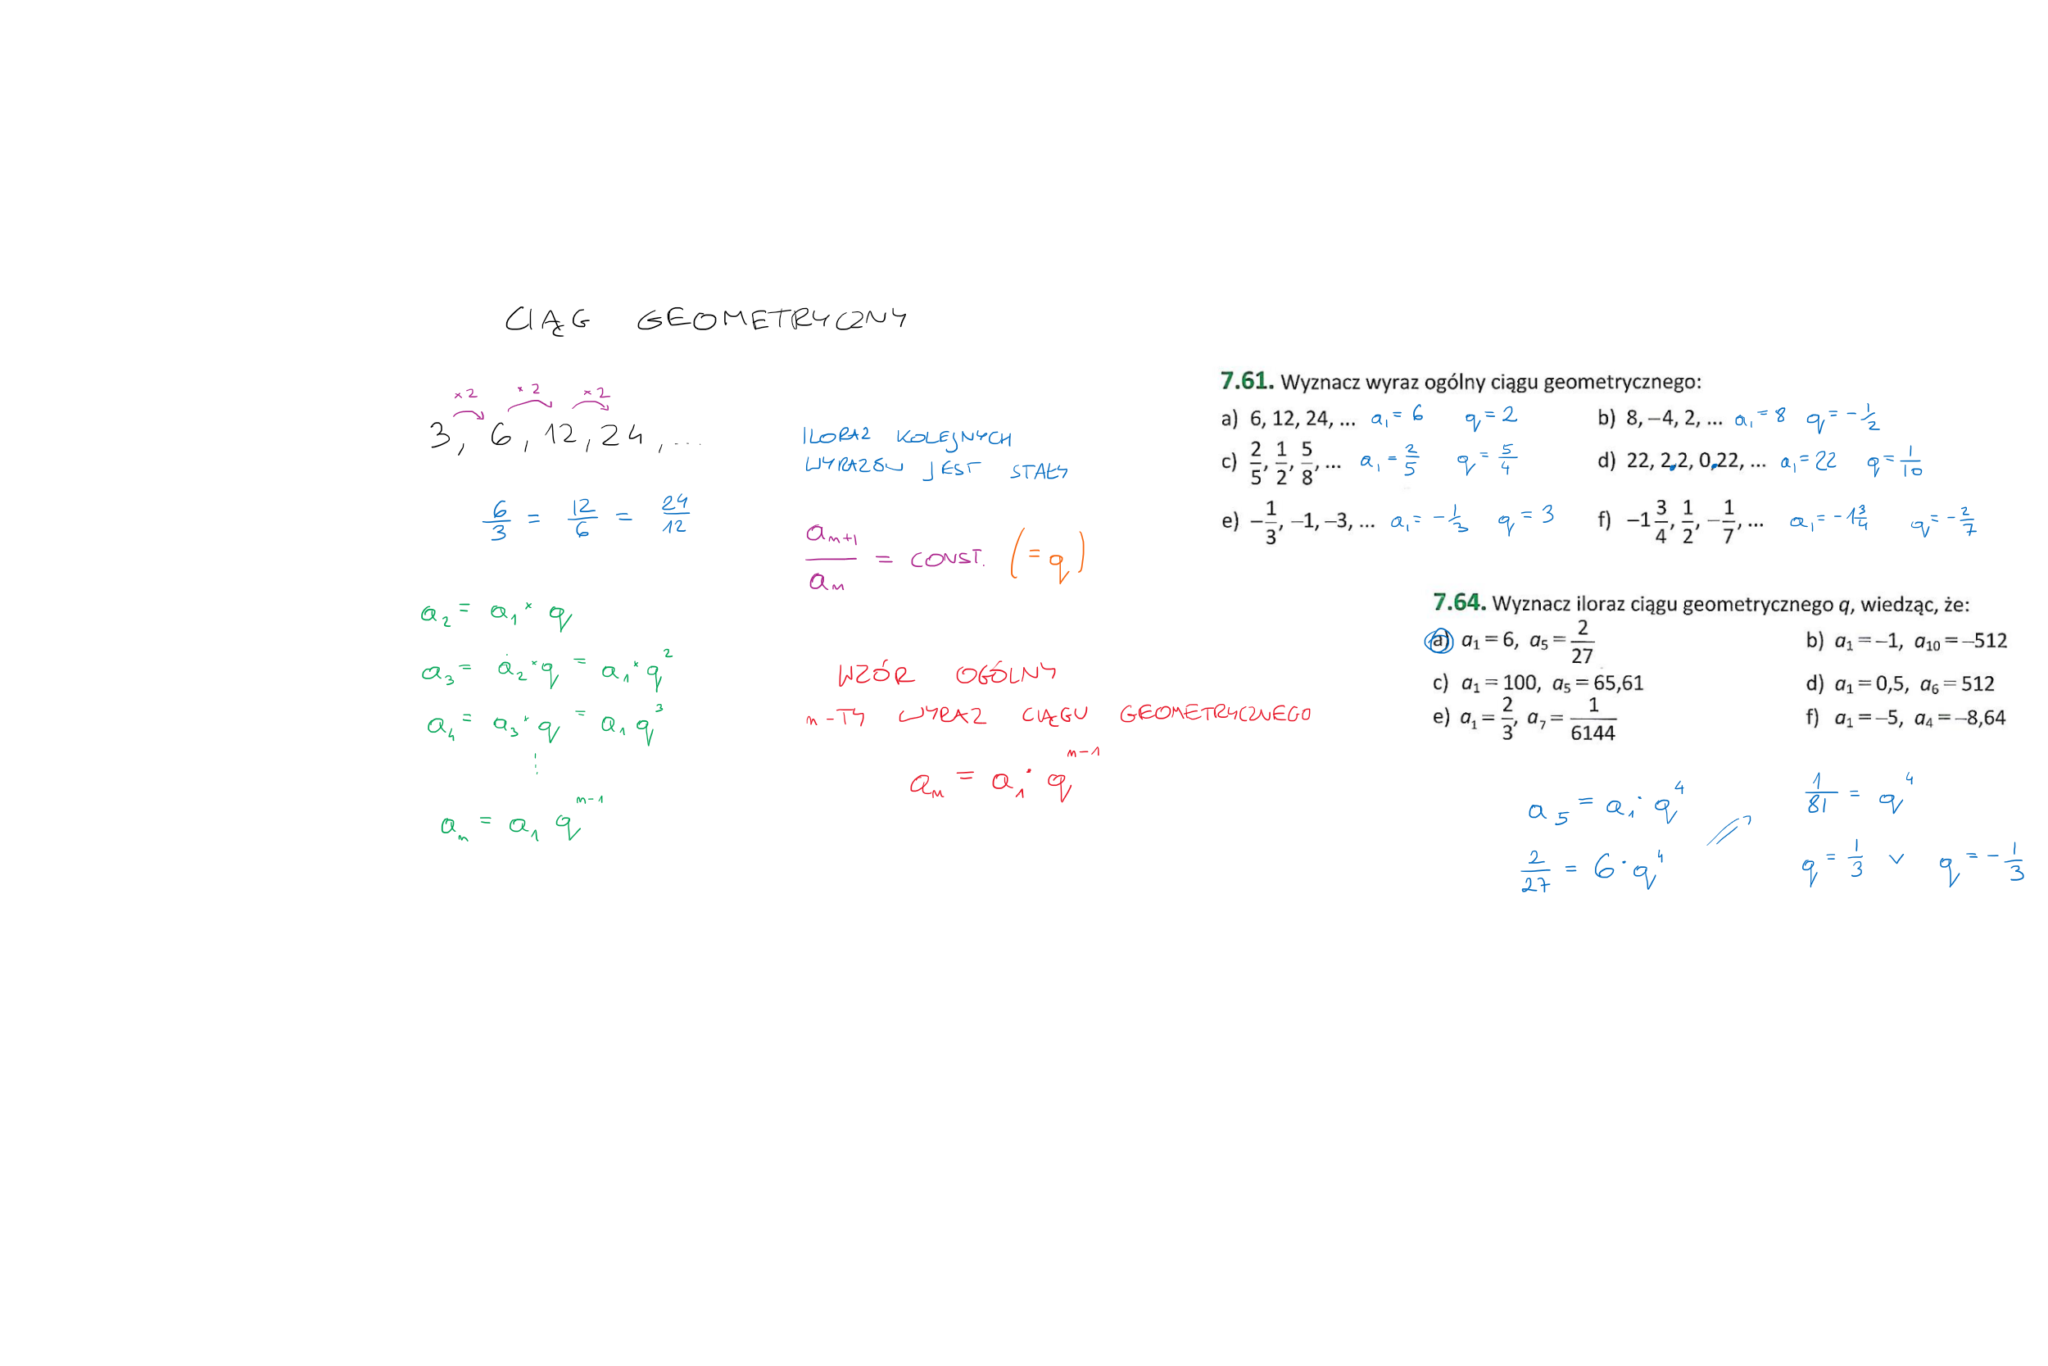 CIĄG GEOMETRYCZNY
×2 ×2 ×2
3, 6, 12, 24, ...
6/3 = 12/6 = 24/12
a₂ = a₁ × q
a₃ = a₂ × q = a₁ × q²
a₄ = a₃ × q = a₁ q³
⋮
aₙ = a₁ qⁿ⁻¹
ILORAZ KOLEJNYCH
WYRAZÓW JEST STAŁY
aₙ₊₁/aₙ = CONST. (= q)
WZÓR OGÓLNY
n-TY WYRAZ CIĄGU GEOMETRYCZNEGO
aₙ = a₁ · qⁿ⁻¹
7.61. Wyznacz wyraz ogólny ciągu geometrycznego:
a) 6, 12, 24, ... a₁ = 6 q = 2 b) 8, –4, 2, ... a₁ = 8 q = -1/2
c) 2/5, 1/2, 5/8, ... a₁ = 2/5 q = 5/4 d) 22, 2,2, 0,22, ... a₁ = 22 q = 1/10
e) –1/3, –1, –3, ... a₁ = -1/3 q = 3 f) –1 3/4, 1/2, –1/7, ... a₁ = -1 3/4 q = -2/7
7.64. Wyznacz iloraz ciągu geometrycznego q, wiedząc, że:
a) a₁ = 6, a₅ = 2/27 b) a₁ = –1, a₁₀ = –512
c) a₁ = 100, a₅ = 65,61 d) a₁ = 0,5, a₆ = 512
e) a₁ = 2/3, a₇ = 1/6144 f) a₁ = –5, a₄ = –8,64
a₅ = a₁ · q⁴
2/27 = 6 · q⁴
1/81 = q⁴
q = 1/3 ∨ q = -1/3